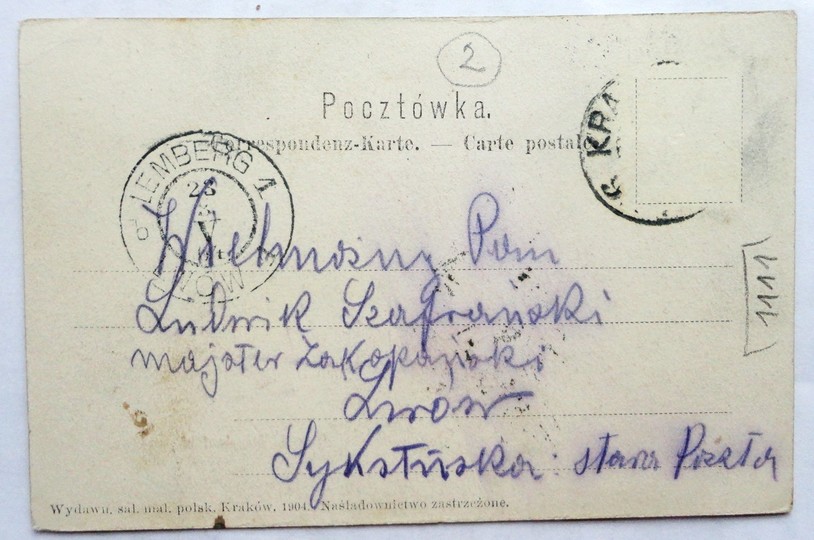 2
Pocztówka.
Correspondenz-Karte. — Carte postale
KRA
LEMBERG 1
23
V
LWÓW
Wielmożny Pan
Ludwik Szafrański
majster Zakopański
Lwów
Sykstuska: stara Poczta
1111
Wydawn. sal. mal. polsk. Kraków. 1904. Naśladownictwo zastrzeżone.